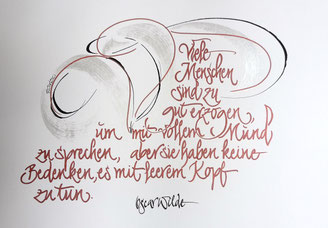 Viele
Menschen
sind zu
gut erzogen,
um mit vollem Mund
zu sprechen, aber sie haben keine
Bedenken, es mit leerem Kopf
zu tun.
Oscar Wilde